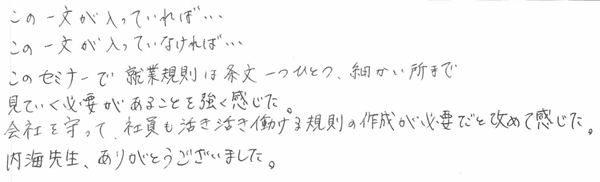 この一文が入っていれば…
この一文が入っていなければ…
このセミナーで就業規則は条文一つひとつ、細かい所まで
見ていく必要があることを強く感じた。
会社を守って、社員も活き活き働ける規則の作成が必要だと改めて感じた。
内海先生、ありがとうございました。